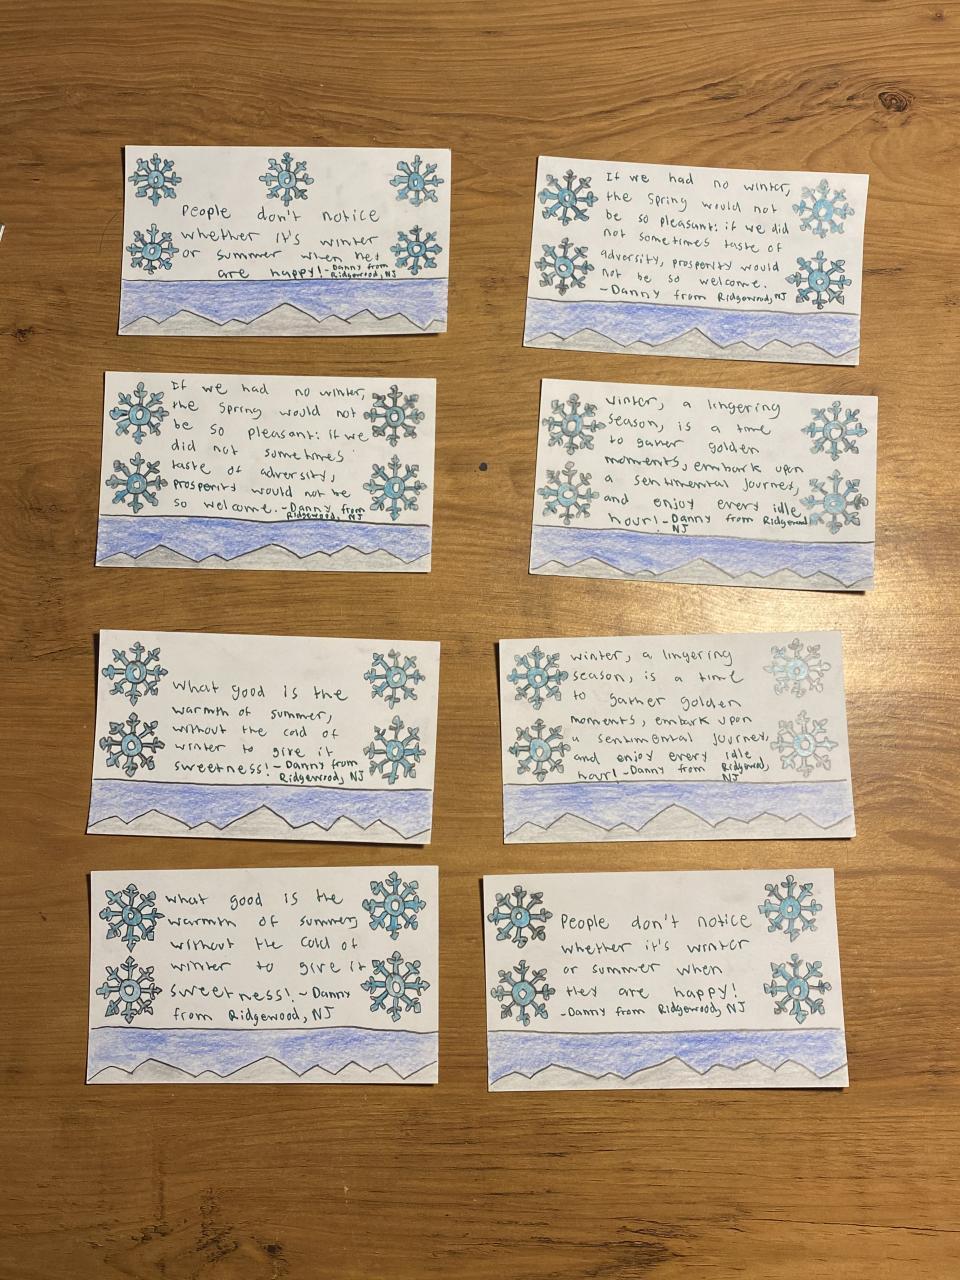 People don't notice
whether it's winter
or summer when they
are happy! - Danny from
Ridgewood, NJ
If we had no winter,
the spring would not
be so pleasant: if we did
not sometimes taste of
adversity, prosperity would
not be so welcome.
-Danny from Ridgewood, NJ
If we had no winter,
the spring would not
be so pleasant: if we
did not sometimes
taste of adversity,
prosperity would not be
so welcome. -Danny from
Ridgewood, NJ
Winter, a lingering
season, is a time
to gather golden
moments, embark upon
a sentimental journey,
and enjoy every idle
hour! -Danny from Ridgewood
NJ
What good is the
warmth of summer,
without the cold of
winter to give it
sweetness! - Danny from
Ridgewood, NJ
Winter, a lingering
season, is a time
to gather golden
moments, embark upon
a sentimental journey,
and enjoy every idle
hour! -Danny from Ridgewood,
NJ
What good is the
warmth of summer,
without the cold of
winter to give it
sweetness! - Danny
from Ridgewood, NJ
People don't notice
whether it's winter
or summer when
they are happy!
-Danny from Ridgewood, NJ